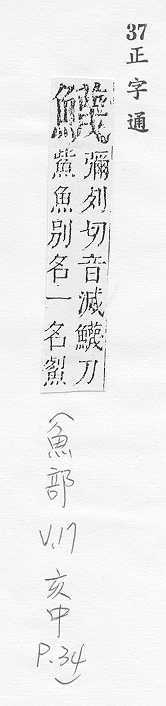 37正字通
鱴
彌列切音滅鱴刀
鮆魚別名一名鮤
(魚部 V.17 亥中 P.34)